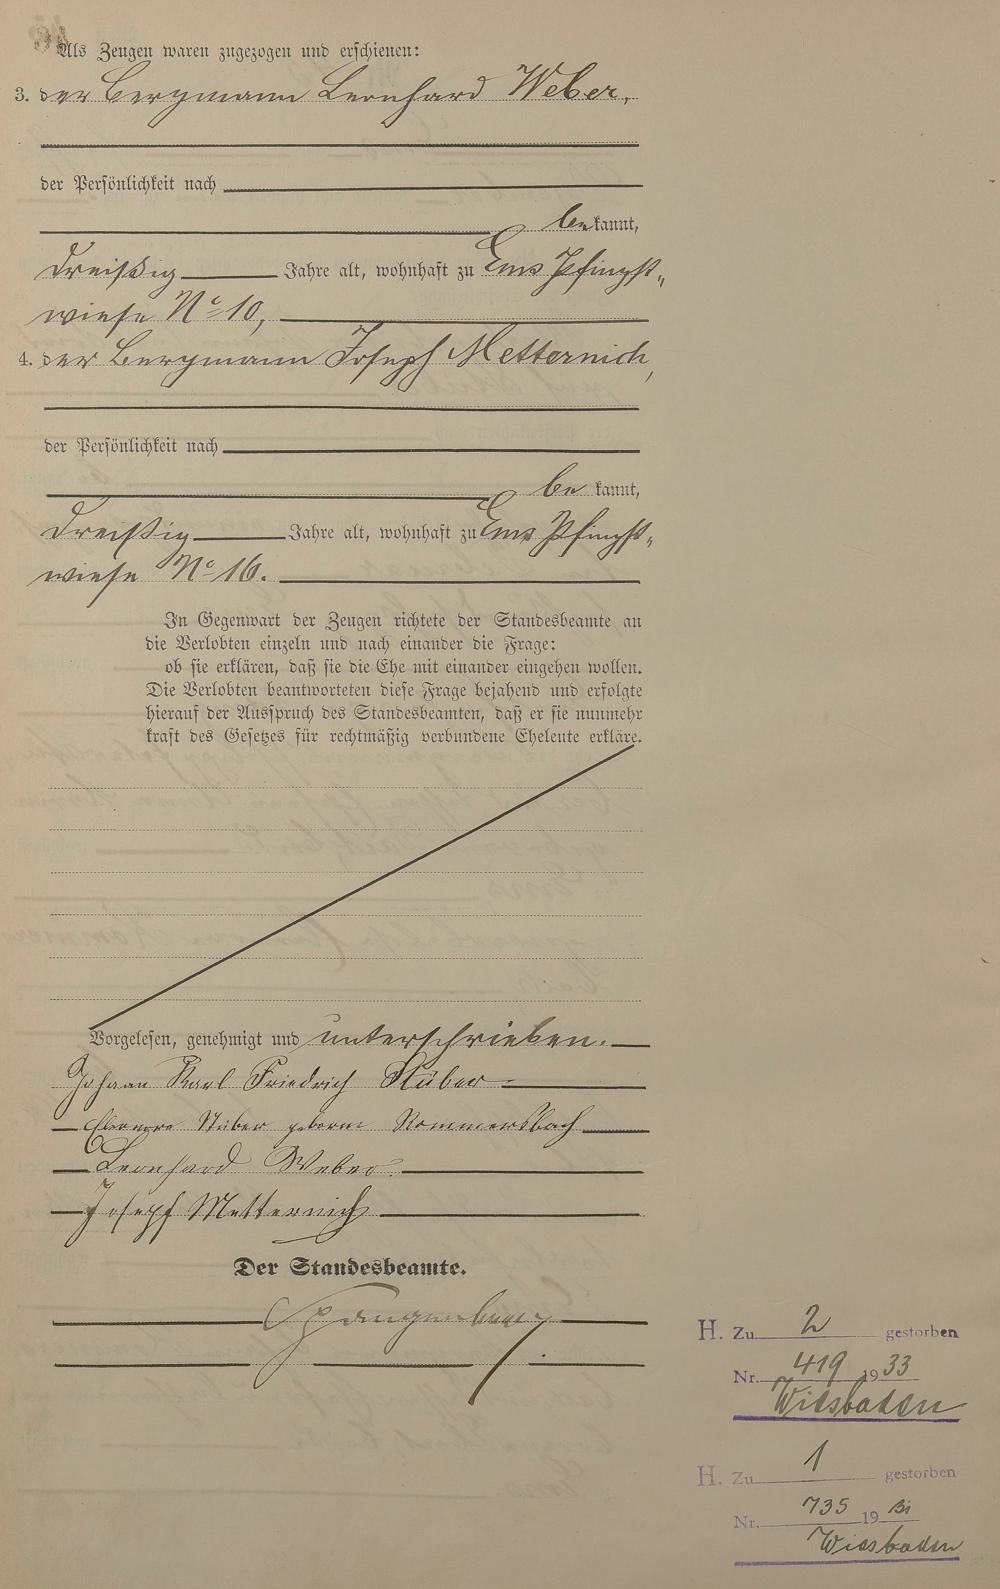 Als Zeugen waren zugezogen und erschienen:
3. der Bergmann Leonhard Weber,
der Persönlichkeit nach
bekannt,
dreißig Jahre alt, wohnhaft zu Ems Pfingst„
wiese No 10,
4. der Bergmann Joseph Metternich,
der Persönlichkeit nach
be kannt,
dreißig Jahre alt, wohnhaft zu Ems Pfingst„
wiese No 16.
In Gegenwart der Zeugen richtete der Standesbeamte an
die Verlobten einzeln und nach einander die Frage:
ob sie erklären, daß sie die Ehe mit einander eingehen wollen.
Die Verlobten beantworteten diese Frage bejahend und erfolgte
hierauf der Ausspruch des Standesbeamten, daß er sie nunmehr
kraft des Gesetzes für rechtmäßig verbundene Eheleute erkläre.
Vorgelesen, genehmigt und unterschrieben.
Johann Karl Friedrich Stüber
Eleonore Stüber geborene Rommersbach
Leonhard Weber
Joseph Metternich
Der Standesbeamte.
H. Zu 2 gestorben
Nr. 419 1933
Wiesbaden
H. Zu 1 gestorben
Nr. 735 19
Wiesbaden